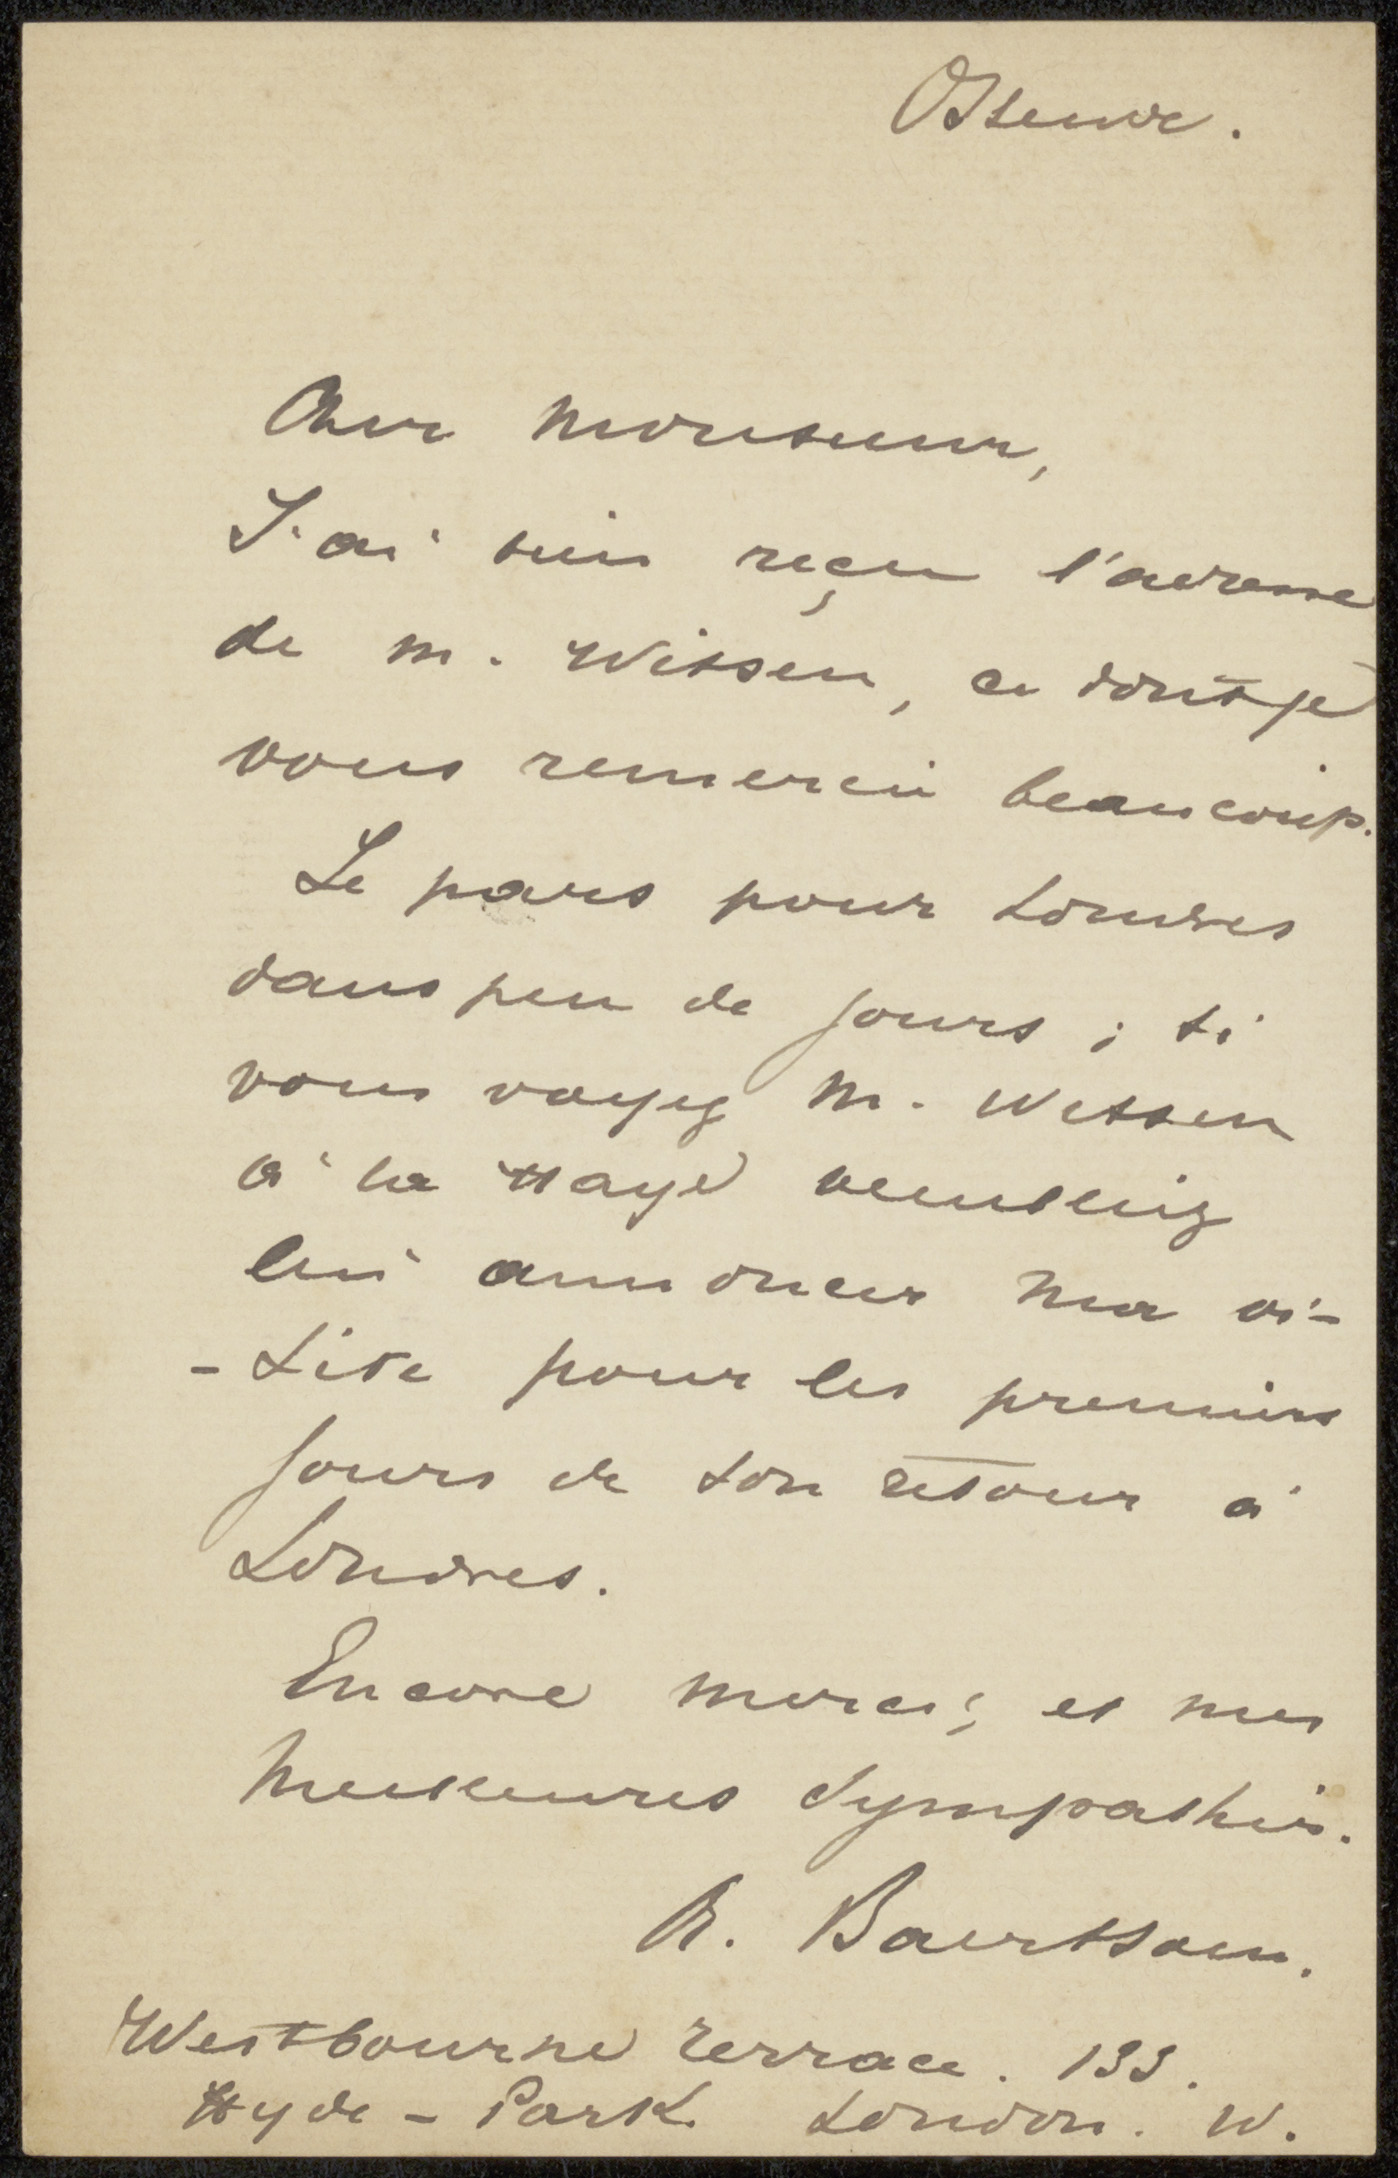 Ostende.
Cher Monsieur,
J'ai bien reçu l'adresse
de M. Witsen, ce dont je
vous remercie beaucoup.
Je pars pour Londres
dans peu de jours ; si
vous voyez M. Witsen
à la Haye veuillez
lui annoncer ma vi-
-site pour les premiers
jours de son retour à
Londres.
Encore merci, et mes
meilleures sympathies.
A. Baertsoen.
Westbourne Terrace. 133.
Hyde - Park London. W.